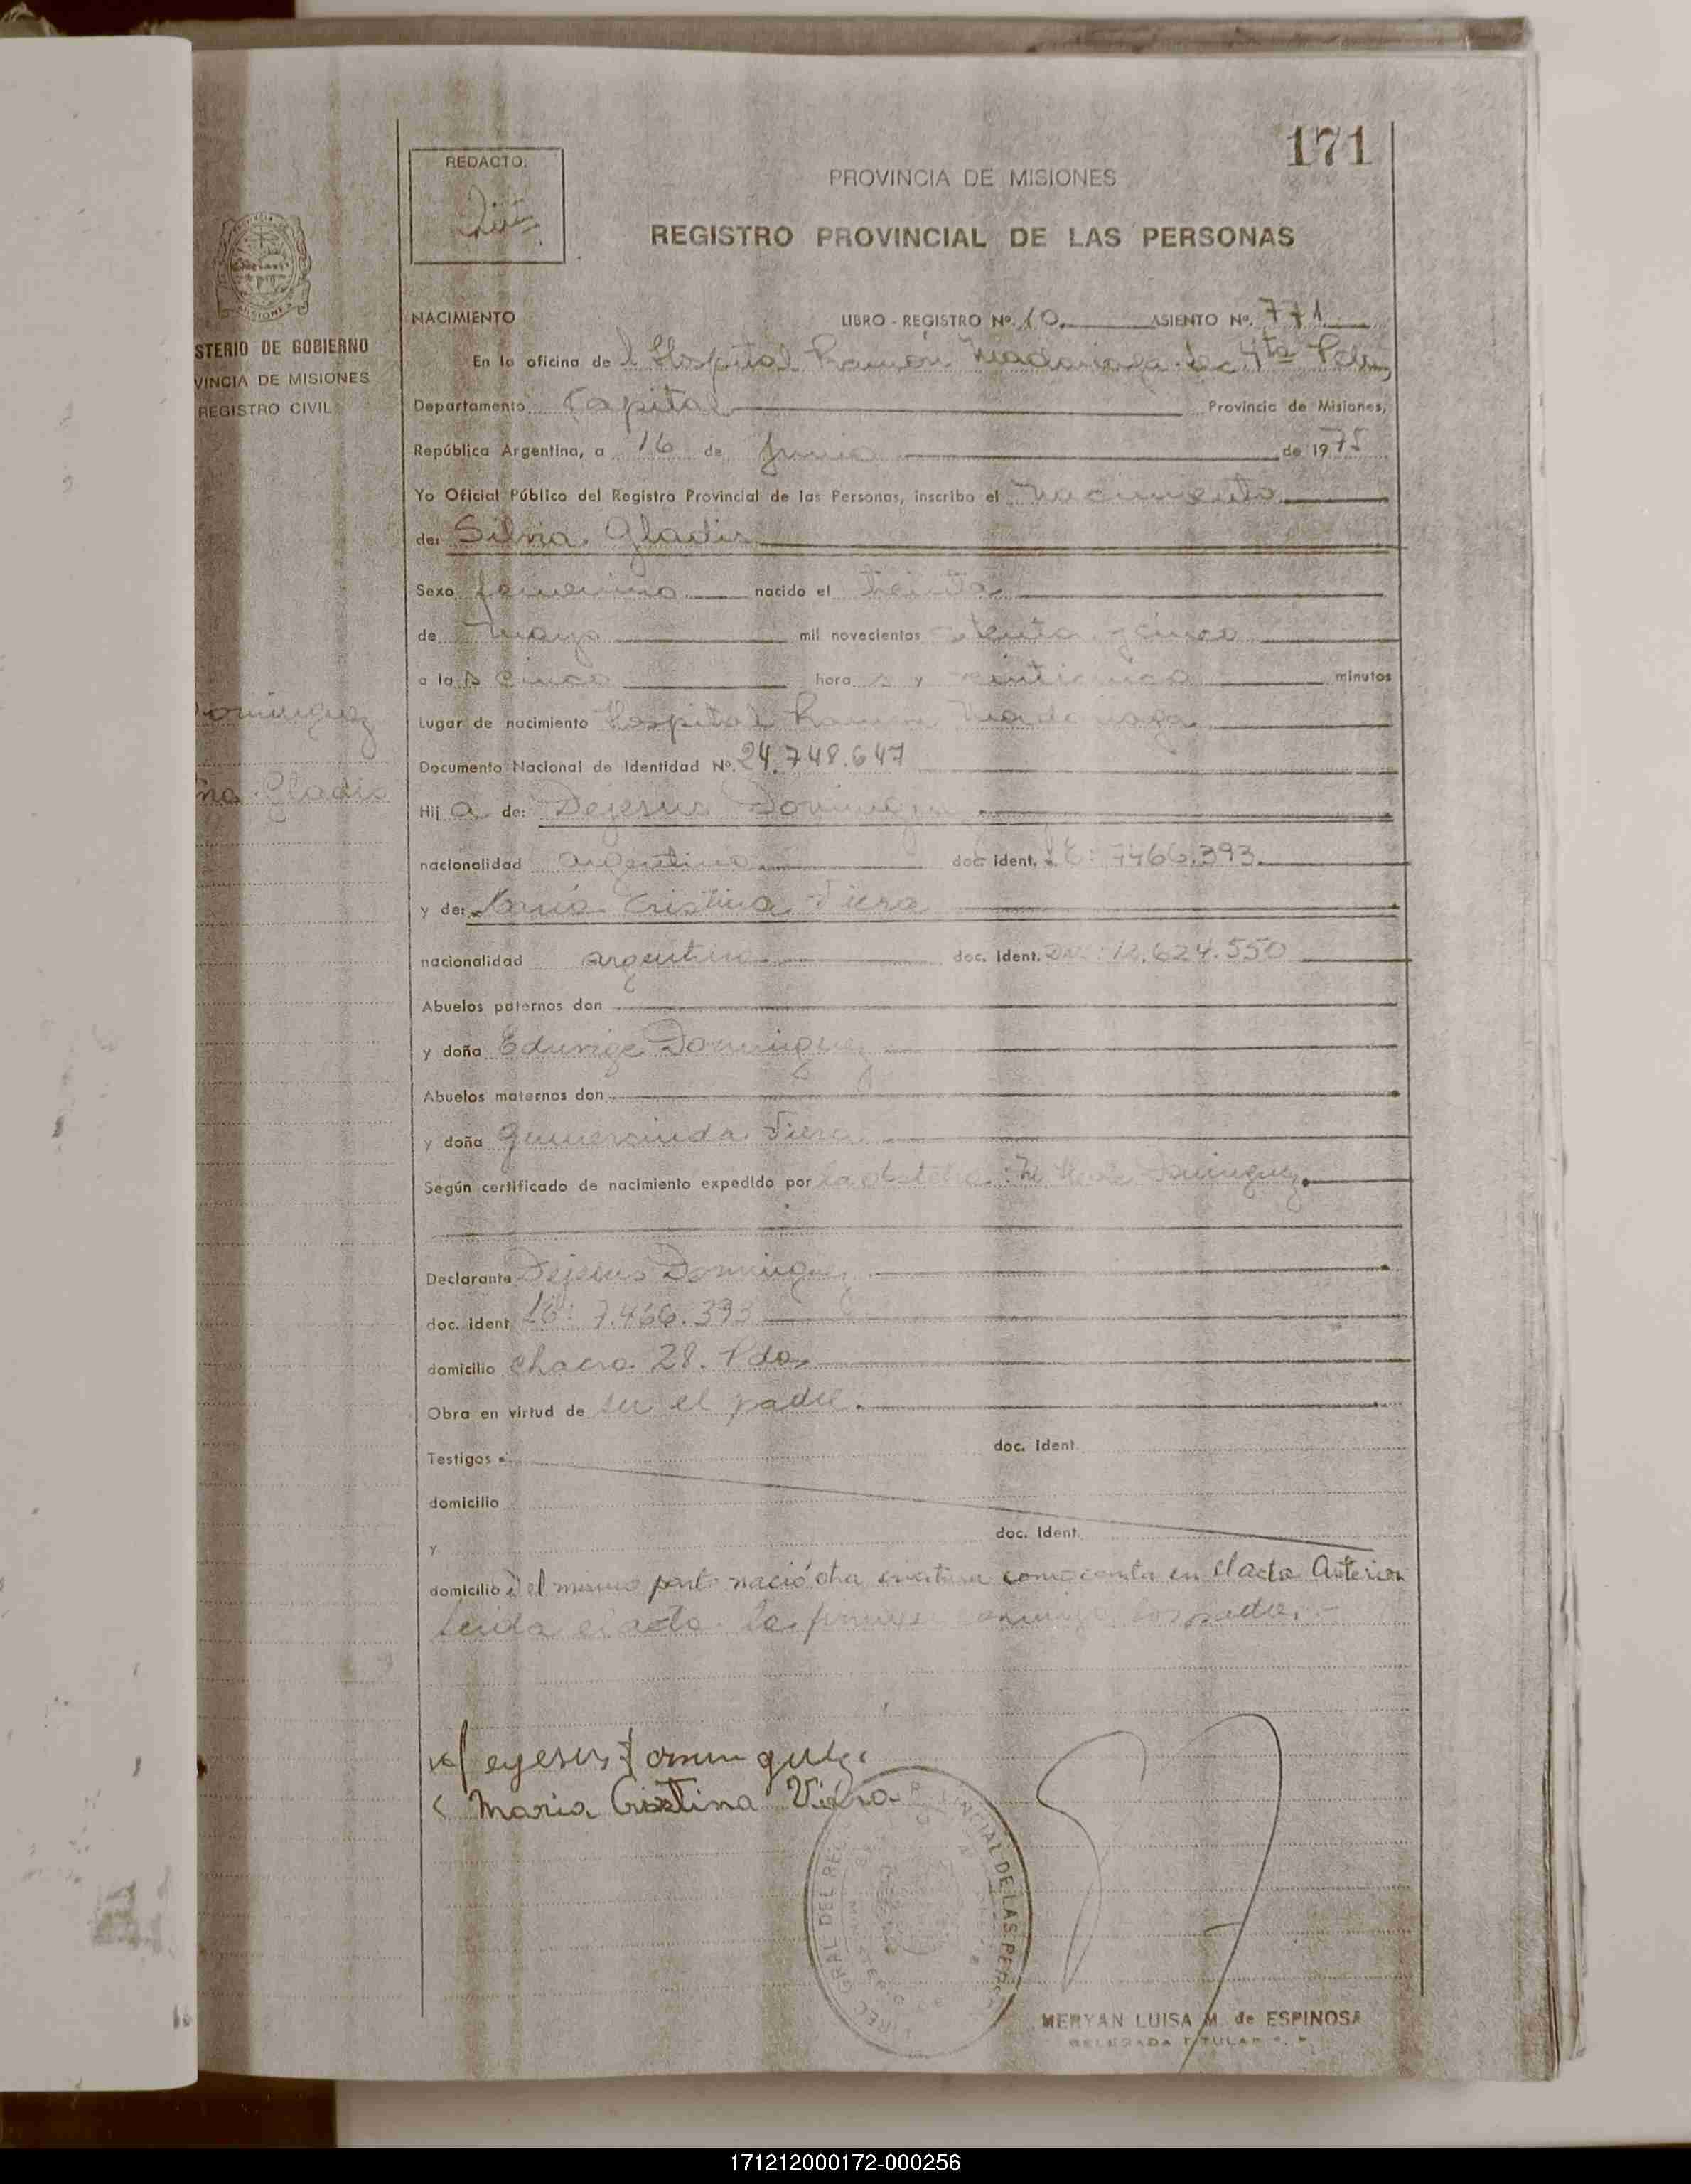 171
REDACTO.
PROVINCIA DE MISIONES
REGISTRO PROVINCIAL DE LAS PERSONAS
NACIMIENTO
LIBRO - REGISTRO Nº. 10. ASIENTO Nº. 771
STERIO DE GOBIERNO
VINCIA DE MISIONES
REGISTRO CIVIL
En la oficina de l Hospital Ramón Madariaga de 4ta Pdas,
Departamento Capital Provincia de Misiones,
República Argentina, a 16 de Junio de 1975
Yo Oficial Público del Registro Provincial de las Personas, inscribo el Nacimiento
de: Silvia Gladis
Sexo femenino nacido el treinta
de Mayo mil novecientos setenta y cinco
a la s cinco hora s y veinticinco minutos
Lugar de nacimiento Hospital Ramon Madariaga
Dominguez
Documento Nacional de Identidad Nº. 24.748.647
Gladis
Hij a de: Dejesus Dominguez
nacionalidad argentino doc. Ident. 7466.393
y de: María Cristina Viera
nacionalidad argentina doc. Ident. 12.624.550
Abuelos paternos don
y doña Eduvige Dominguez
Abuelos maternos don
y doña Gumercinda Viera
Según certificado de nacimiento expedido por la obstetra Dominguez
Declarante Dejesus Dominguez
doc. ident LE: 7.466.393
domicilio chacra 28. Pdas
Obra en virtud de ser el padre.
Testigos doc. Ident.
domicilio
y doc. Ident.
domicilio Del mismo parto nació otra criatura como consta en el acta Anterior
leida el acta la firman conmigo los padres.-
Dejesus Dominguez
Maria Cristina Viera
DIREC. GRAL DEL REG. PROVINCIAL DE LAS PERS
MERYAN LUISA M. de ESPINOSA
DELEGADA TITULAR
171212000172-000256